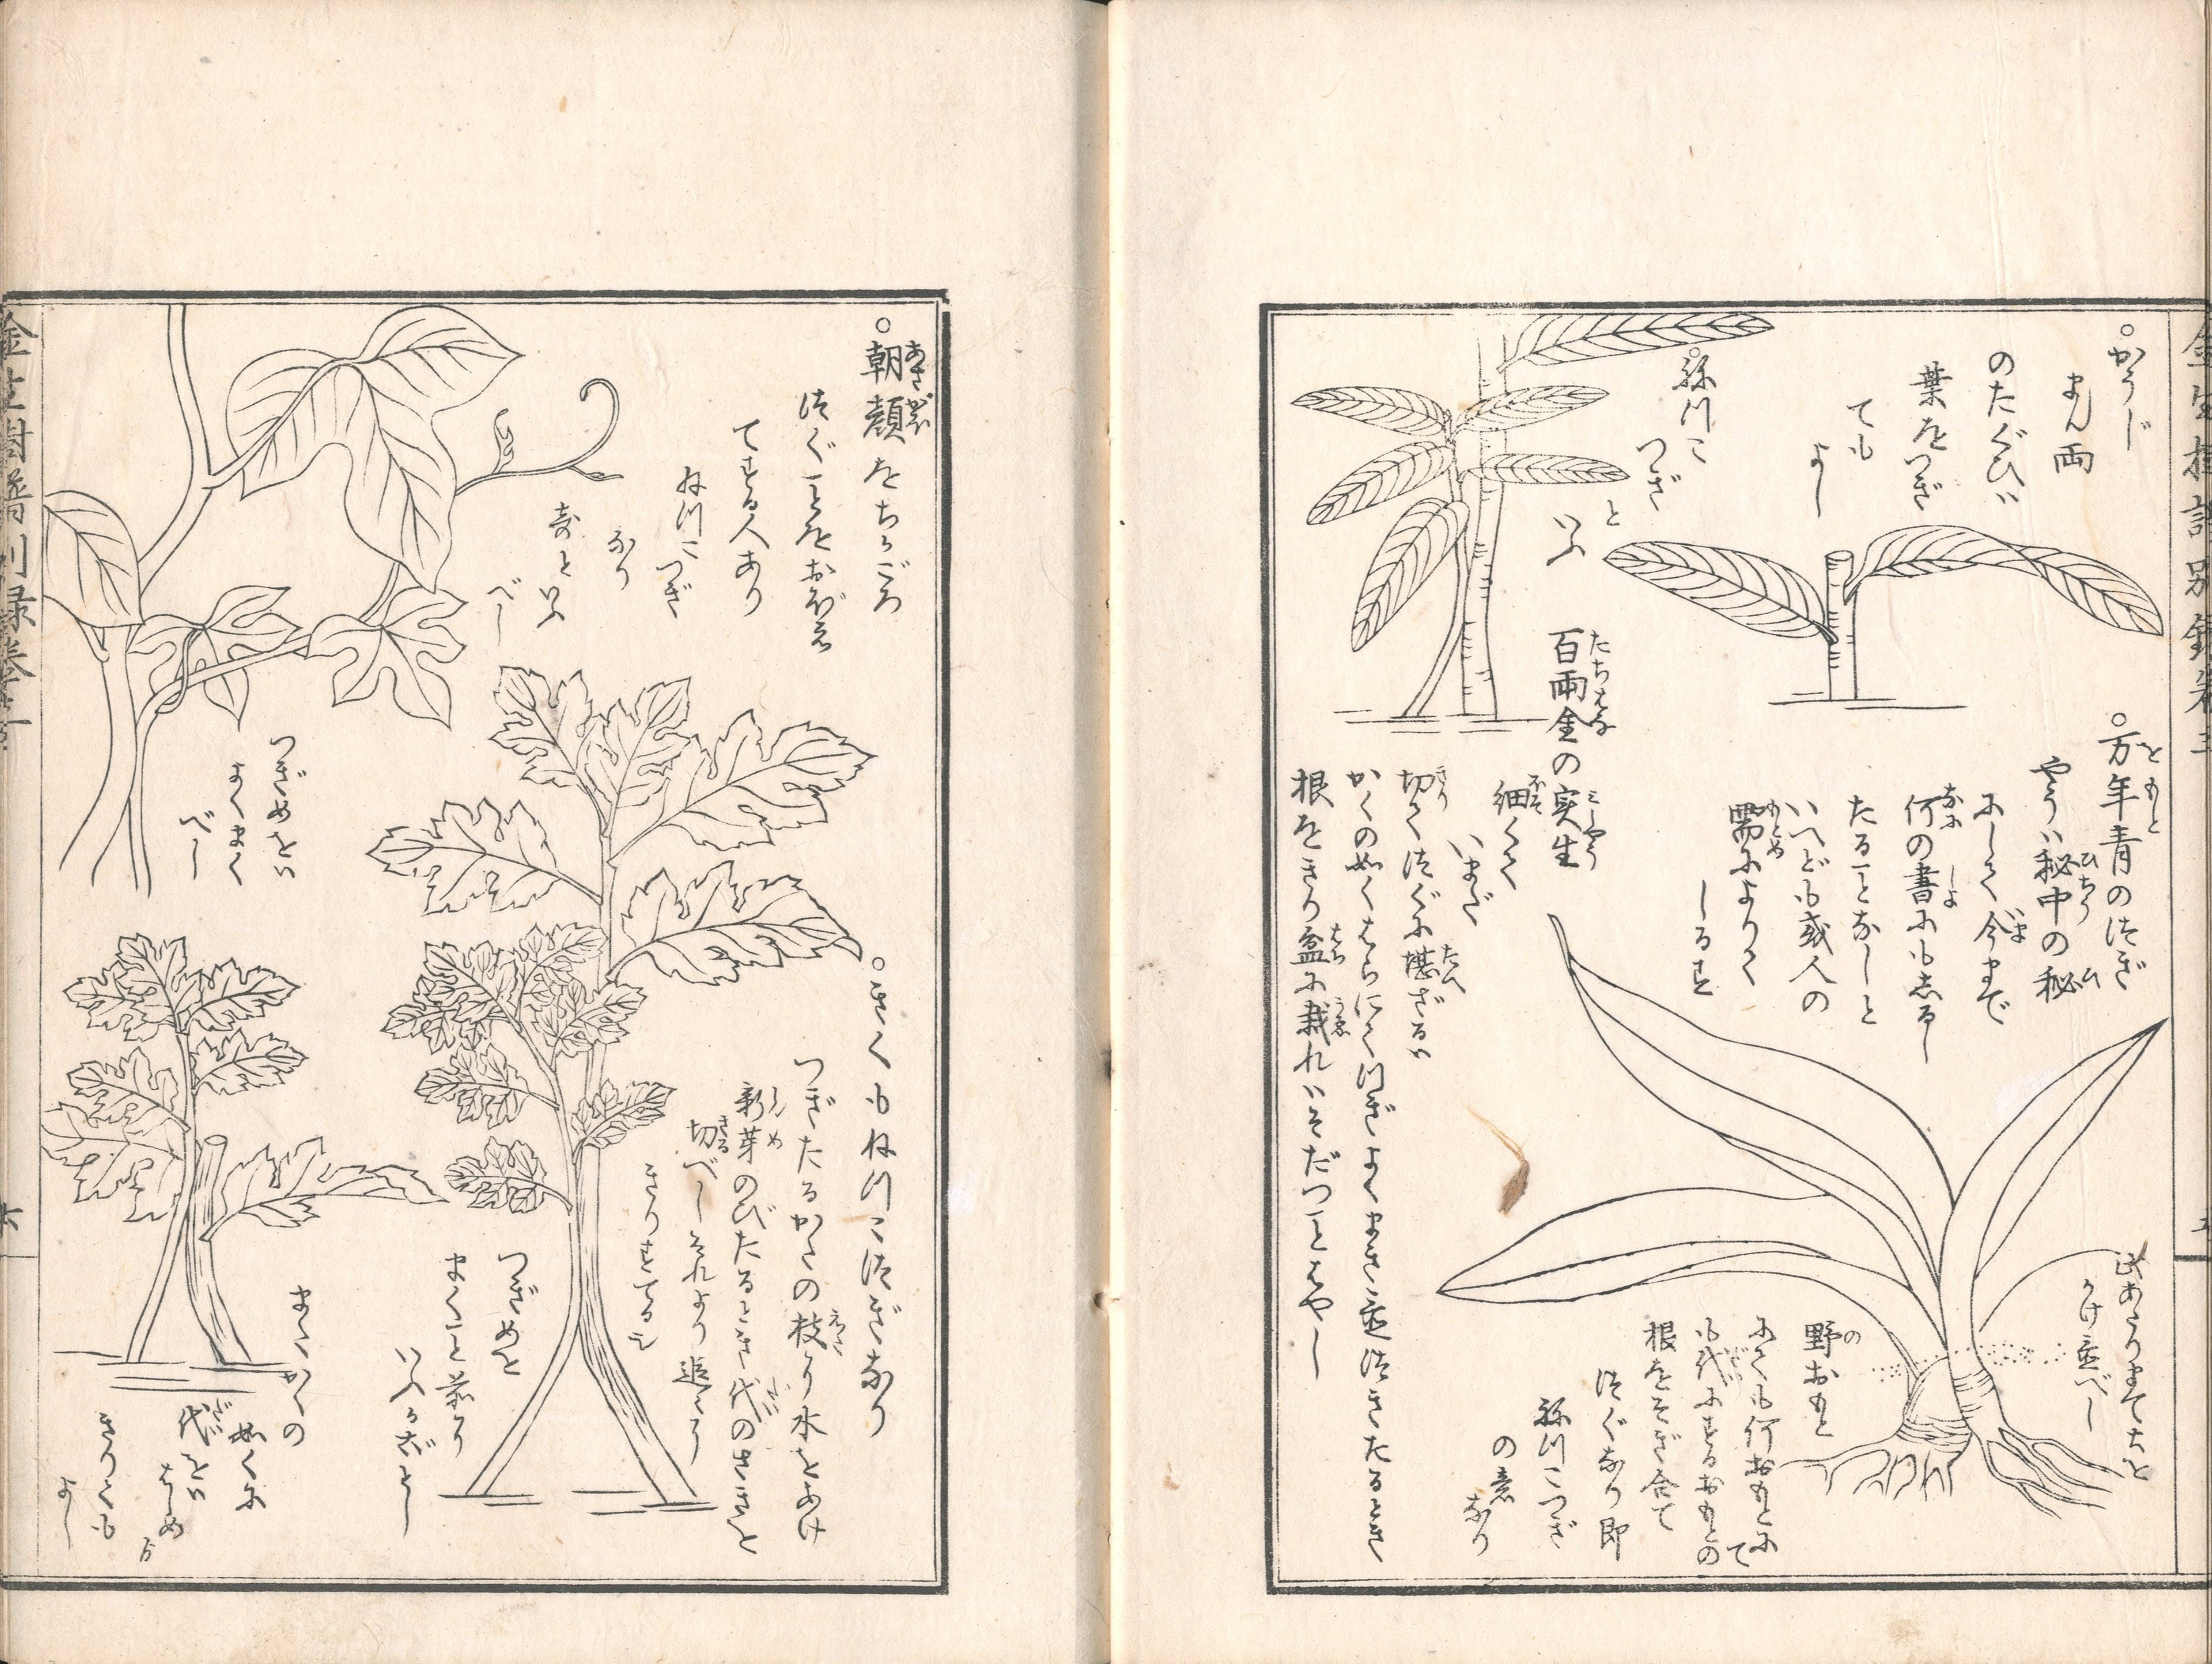 金生樹譜別録巻三
○かうじ
まん両
のたぐひハ
葉をつぎ
ても
よし
○祢川こ
つぎ
と
いふ
○万年青のつぎ
やうハ秘中の秘
にして今まで
何の書にもしるし
たることなしと
いへども或人の
需によりて
しるす
百両金の実生
いまだ
細くて
切てつぐに堪ざるハ
かくの如くはらにてつぎよくまき置つきたるとき
根をきり盆に栽れハそだつことはやし
此あたりまで土を
かけ置べし
野おもと
にても何おもとにて
も代にするおもとの
根をそぎ合て
つぐなり即
祢川こつぎ
の意なり
五
○朝顔をちかごろ
つぐことをおぼえ
てする人あり
ねつこつぎ
なり
奇といふ
べし
つぎめをハ
よくまく
べし
○きくもねつこつぎなり
つぎたるかたの枝より水をあけ
新芽のびたるとき代のさきを
切べしそれより追々
きりすてる也
つぎめを
まくこと前に
いへるがごとし
またかくの
如くに
代をハ
はじめ
より
きりても
よし
金生樹譜別録巻三
六